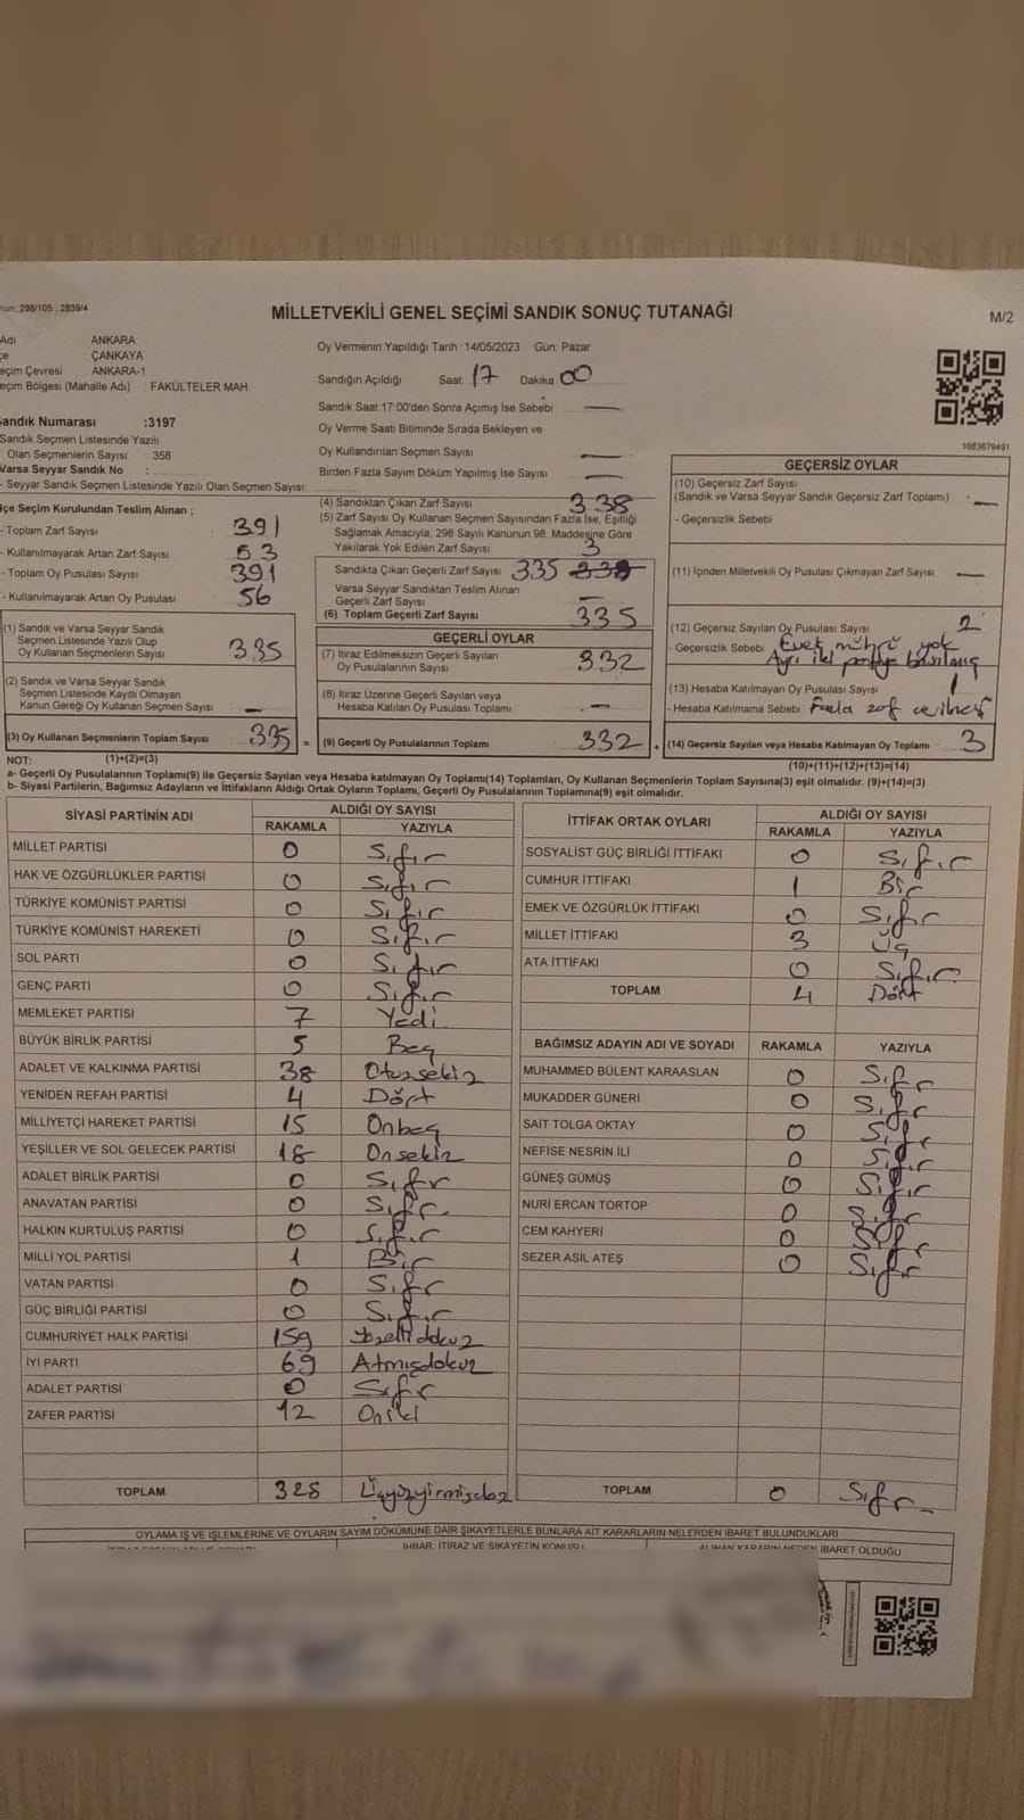 298/105 . 2839/4
MİLLETVEKİLİ GENEL SEÇİMİ SANDIK SONUÇ TUTANAĞI
M/2
Adı ANKARA
ÇANKAYA
eçim Çevresi ANKARA-1
eçim Bölgesi (Mahalle Adı) FAKÜLTELER MAH.
andık Numarası :3197
Sandık Seçmen Listesinde Yazılı
Olan Seçmenlerin Sayısı 358
Varsa Seyyar Sandık No :
- Seyyar Sandık Seçmen Listesinde Yazılı Olan Seçmen Sayısı
lçe Seçim Kurulundan Teslim Alınan ;
- Toplam Zarf Sayısı : 391
- Kullanılmayarak Artan Zarf Sayısı 53
- Toplam Oy Pusulası Sayısı 391
- Kullanılmayarak Artan Oy Pusulası 56
(1) Sandık ve Varsa Seyyar Sandık
Seçmen Listesinde Yazılı Olup
Oy Kullanan Seçmenlerin Sayısı 335
(2) Sandık ve Varsa Seyyar Sandık
Seçmen Listesinde Kayıtlı Olmayan
Kanun Gereği Oy Kullanan Seçmen Sayısı —
(3) Oy Kullanan Seçmenlerin Toplam Sayısı 335 =
Oy Vermenin Yapıldığı Tarih :14/05/2023 Gün: Pazar
Sandığın Açıldığı Saat: 17 Dakika: 00
Sandık Saat 17:00'den Sonra Açılmış İse Sebebi —
Oy Verme Saati Bitiminde Sırada Bekleyen ve
Oy Kullandırılan Seçmen Sayısı —
Birden Fazla Sayım Döküm Yapılmış İse Sayısı —
(4) Sandıktan Çıkan Zarf Sayısı 338
(5) Zarf Sayısı Oy Kullanan Seçmen Sayısından Fazla İse, Eşitliği
Sağlamak Amacıyla, 298 Sayılı Kanunun 98. Maddesine Göre
Yakılarak Yok Edilen Zarf Sayısı 3
Sandıkta Çıkan Geçerli Zarf Sayısı 335 338
Varsa Seyyar Sandıktan Teslim Alınan
Geçerli Zarf Sayısı —
(6) Toplam Geçerli Zarf Sayısı 335
GEÇERLİ OYLAR
(7) İtiraz Edilmeksizin Geçerli Sayılan
Oy Pusulalarının Sayısı 332
(8) İtiraz Üzerine Geçerli Sayılan veya
Hesaba Katılan Oy Pusulası Toplamı —
(9) Geçerli Oy Pusulalarının Toplamı 332
1683679491
GEÇERSİZ OYLAR
(10) Geçersiz Zarf Sayısı
(Sandık ve Varsa Seyyar Sandık Geçersiz Zarf Toplamı) —
- Geçersizlik Sebebi
(11) İçinden Milletvekili Oy Pusulası Çıkmayan Zarf Sayısı —
(12) Geçersiz Sayılan Oy Pusulası Sayısı 2
- Geçersizlik Sebebi Evet mührü yok
Ayrı iki partiye basılmış
(13) Hesaba Katılmayan Oy Pusulası Sayısı 1
- Hesaba Katılmama Sebebi Fazla zarf
(14) Geçersiz Sayılan veya Hesaba Katılmayan Oy Toplamı 3
NOT: (1)+(2)=(3)
(10)+(11)+(12)+(13)=(14)
a- Geçerli Oy Pusulalarının Toplamı(9) ile Geçersiz Sayılan veya Hesaba katılmayan Oy Toplamı(14) Toplamları, Oy Kullanan Seçmenlerin Toplam Sayısına(3) eşit olmalıdır. (9)+(14)=(3)
b- Siyasi Partilerin, Bağımsız Adayların ve İttifakların Aldığı Ortak Oyların Toplamı, Geçerli Oy Pusulalarının Toplamına(9) eşit olmalıdır.
SİYASİ PARTİNİN ADI ALDIĞI OY SAYISI
RAKAMLA YAZIYLA
MİLLET PARTİSİ 0 Sıfır
HAK VE ÖZGÜRLÜKLER PARTİSİ 0 Sıfır
TÜRKİYE KOMÜNİST PARTİSİ 0 Sıfır
TÜRKİYE KOMÜNİST HAREKETİ 0 Sıfır
SOL PARTİ 0 Sıfır
GENÇ PARTİ 0 Sıfır
MEMLEKET PARTİSİ 7 Yedi
BÜYÜK BİRLİK PARTİSİ 5 Beş
ADALET VE KALKINMA PARTİSİ 38 Otuzsekiz
YENİDEN REFAH PARTİSİ 4 Dört
MİLLİYETÇİ HAREKET PARTİSİ 15 Onbeş
YEŞİLLER VE SOL GELECEK PARTİSİ 18 Onsekiz
ADALET BİRLİK PARTİSİ 0 Sıfır
ANAVATAN PARTİSİ 0 Sıfır
HALKIN KURTULUŞ PARTİSİ 0 Sıfır
MİLLİ YOL PARTİSİ 1 Bir
VATAN PARTİSİ 0 Sıfır
GÜÇ BİRLİĞİ PARTİSİ 0 Sıfır
CUMHURİYET HALK PARTİSİ 159 Yüzellidokuz
İYİ PARTİ 69 Atmışdokuz
ADALET PARTİSİ 0 Sıfır
ZAFER PARTİSİ 12 Oniki
TOPLAM 328 Üçyüzyirmisekiz
İTTİFAK ORTAK OYLARI ALDIĞI OY SAYISI
RAKAMLA YAZIYLA
SOSYALİST GÜÇ BİRLİĞİ İTTİFAKI 0 Sıfır
CUMHUR İTTİFAKI 1 Bir
EMEK VE ÖZGÜRLÜK İTTİFAKI 0 Sıfır
MİLLET İTTİFAKI 3 Üç
ATA İTTİFAKI 0 Sıfır
TOPLAM 4 Dört
BAĞIMSIZ ADAYIN ADI VE SOYADI RAKAMLA YAZIYLA
MUHAMMED BÜLENT KARAASLAN 0 Sıfır
MUKADDER GÜNERİ 0 Sıfır
SAİT TOLGA OKTAY 0 Sıfır
NEFİSE NESRİN İLİ 0 Sıfır
GÜNEŞ GÜMÜŞ 0 Sıfır
NURİ ERCAN TORTOP 0 Sıfır
CEM KAHYERİ 0 Sıfır
SEZER ASİL ATEŞ 0 Sıfır
TOPLAM 0 Sıfır
OYLAMA İŞ VE İŞLEMLERİNE VE OYLARIN SAYIM DÖKÜMÜNE DAİR ŞİKAYETLERLE BUNLARA AİT KARARLARIN NELERDEN İBARET BULUNDUKLARI
İHBAR, İTİRAZ VE ŞİKAYETİN KONUSU
ALINAN KARARIN NEDEN İBARET OLDUĞU